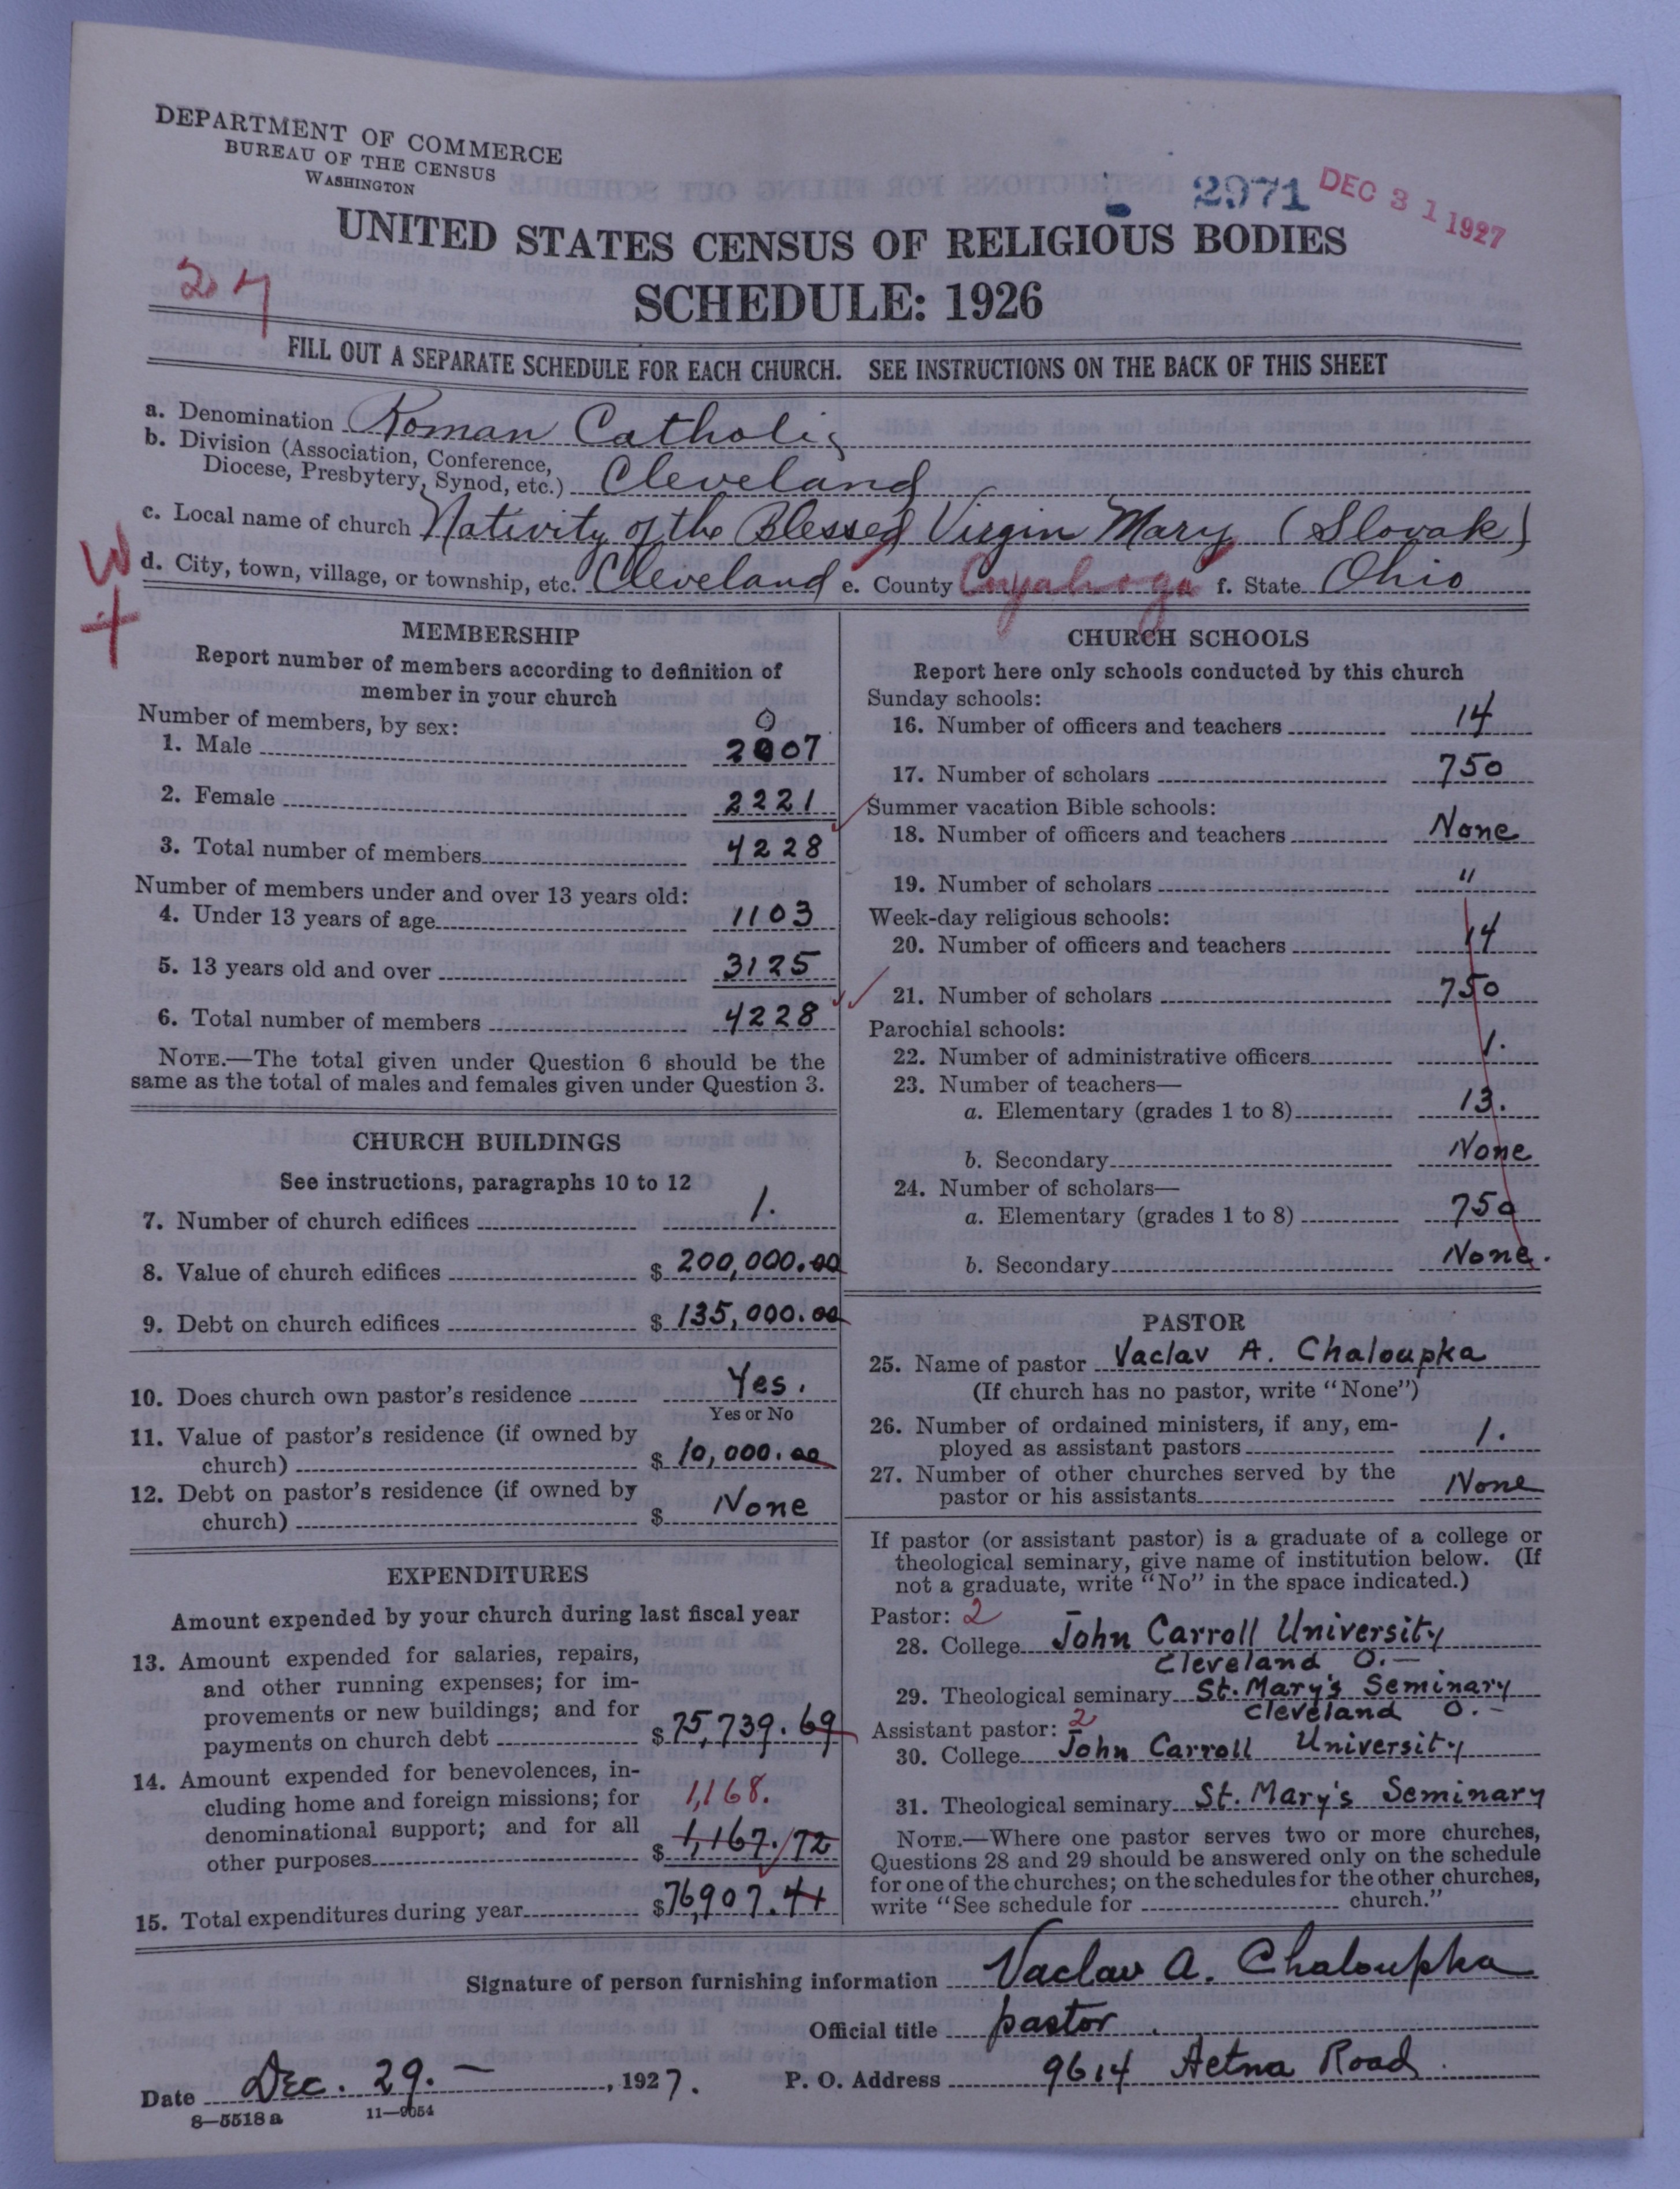 DEPARTMENT OF COMMERCE
BUREAU OF THE CENSUS
WASHINGTON
2971
DEC 31 1927
UNITED STATES CENSUS OF RELIGIOUS BODIES
SCHEDULE: 1926
27
FILL OUT A SEPARATE SCHEDULE FOR EACH CHURCH. SEE INSTRUCTIONS ON THE BACK OF THIS SHEET
a. Denomination Roman Catholic
b. Division (Association, Conference,
Diocese, Presbytery, Synod, etc.) Cleveland
c. Local name of church Nativity of the Blessed Virgin Mary (Slovak)
W
d. City, town, village, or township, etc. Cleveland e. County Cuyahoga f. State Ohio
+
MEMBERSHIP
Report number of members according to definition of
member in your church
Number of members, by sex:
0
1. Male 2007
2. Female 2221
3. Total number of members 4228
Number of members under and over 13 years old:
4. Under 13 years of age 1103
5. 13 years old and over 3125
6. Total number of members 4228
NOTE.—The total given under Question 6 should be the
same as the total of males and females given under Question 3.
CHURCH BUILDINGS
See instructions, paragraphs 10 to 12
7. Number of church edifices 1.
8. Value of church edifices $ 200,000.00
9. Debt on church edifices $ 135,000.00
10. Does church own pastor's residence Yes.
Yes or No
11. Value of pastor's residence (if owned by
church) $ 10,000.00
12. Debt on pastor's residence (if owned by
church) $ None
EXPENDITURES
Amount expended by your church during last fiscal year
13. Amount expended for salaries, repairs,
and other running expenses; for im-
provements or new buildings; and for
payments on church debt $ 75,739.69
14. Amount expended for benevolences, in-
cluding home and foreign missions; for 1,168.
denominational support; and for all
other purposes $ 1,167.72
15. Total expenditures during year $ 76,907.41
CHURCH SCHOOLS
Report here only schools conducted by this church
Sunday schools:
16. Number of officers and teachers 14
17. Number of scholars 750
Summer vacation Bible schools:
18. Number of officers and teachers None
19. Number of scholars "
Week-day religious schools:
20. Number of officers and teachers 14
21. Number of scholars 750
Parochial schools:
22. Number of administrative officers 1.
23. Number of teachers—
a. Elementary (grades 1 to 8) 13.
b. Secondary None
24. Number of scholars—
a. Elementary (grades 1 to 8) 750
b. Secondary None.
PASTOR
25. Name of pastor Vaclav A. Chaloupka
(If church has no pastor, write "None")
26. Number of ordained ministers, if any, em-
ployed as assistant pastors 1.
27. Number of other churches served by the
pastor or his assistants None
If pastor (or assistant pastor) is a graduate of a college or
theological seminary, give name of institution below. (If
not a graduate, write "No" in the space indicated.)
Pastor: 2
28. College John Carroll University
Cleveland O.—
29. Theological seminary St. Mary's Seminary
Cleveland O.—
Assistant pastor: 2
30. College John Carroll University
31. Theological seminary St. Mary's Seminary
NOTE.—Where one pastor serves two or more churches,
Questions 28 and 29 should be answered only on the schedule
for one of the churches; on the schedules for the other churches,
write "See schedule for church."
Signature of person furnishing information Vaclav A. Chaloupka
Official title pastor.
Date Dec. 29.—, 1927. P. O. Address 9614 Aetna Road.
8—5518a 11—9054